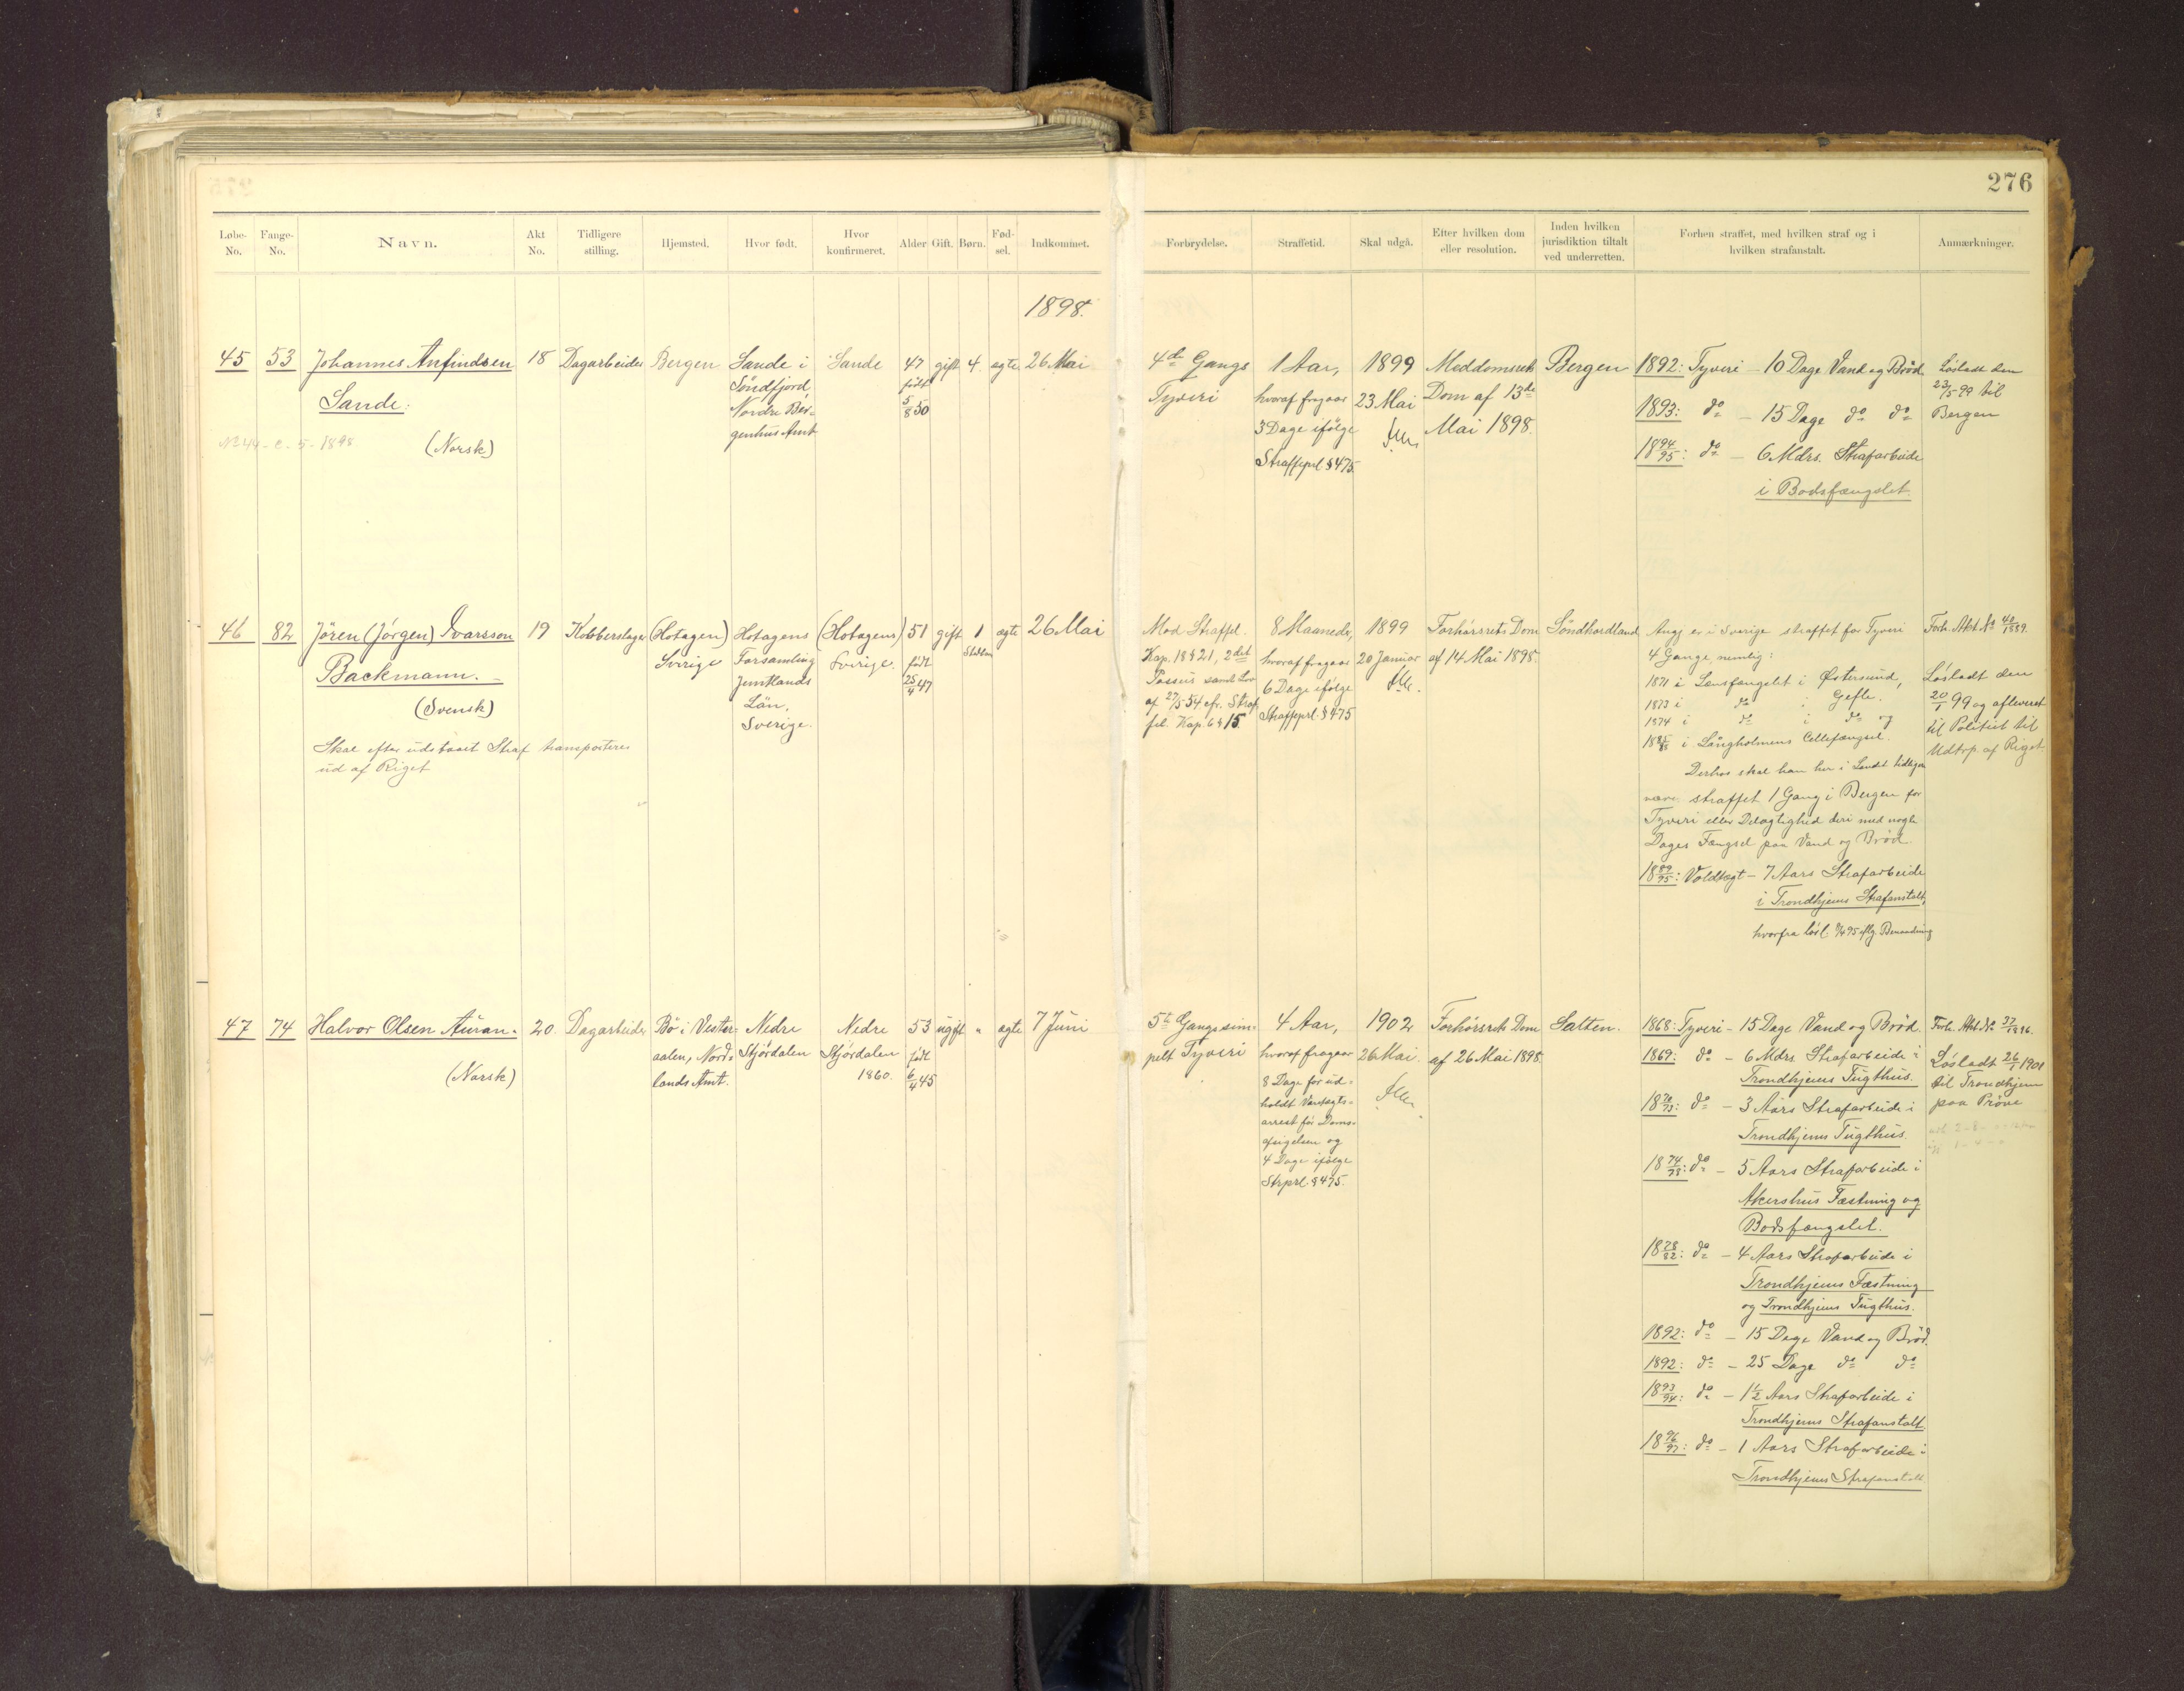 276
Løbe-No.
Fange-No.
Navn.
Akt No.
Tidligere stilling.
Hjemsted.
Hvor født.
Hvor konfirmeret.
Alder
Gift.
Børn.
Fød-sel.
Indkommet.
Forbrydelse.
Straffetid.
Skal udgå.
Efter hvilken dom eller resolution.
Inden hvilken jurisdiktion tiltalt ved underretten.
Forhen straffet, med hvilken straf og i hvilken strafanstalt.
Anmærkninger.
1898.
45
53
Johannes Anfindsen
Sande.
(Norsk)
No 44 - c - 5 - 1898
18
Dagarbeider
Bergen
Sande i
Söndfjord
Nordre Ber-
genhus Amt
Sande
47
født
5/8 50
gift
4
ægte
26 Mai
4de Gangs
Tyveri
1 Aar,
hvoraf fragaar
3 Dage ifølge
Straffeprl § 475.
1899
23 Mai
Meddomsrets
Dom af 13de
Mai 1898.
Bergen
1892: Tyveri - 10 Dage Vand og Brød
1893: do - 15 Dage do do
1894/95: do - 6 Mdrs. Strafarbeide
i Bodsfængslet.
Løsladt den
23/5 99 til
Bergen
46
82
Jören (Jörgen) Ivarsson
Backmann.
(Svensk)
Skal efter udstaaet Straf transporteres
ud af Riget
19
Kobberslager
(Hotagen)
Sverige
Hotagens
Forsamling
Jemtlands
Län,
Sverige.
(Hotagens)
Sverige.
51
født
25/4 47
gift
1
ægte
26 Mai
Mod Straffel.
Kap. 18 § 21, 2det
Passus samt Lov
af 27/5 54 cfr. Straf
fel. Kap. 6 § 15.
8 Maaneder,
hvoraf fragaar
6 Dage ifølge
Straffeprl. § 475
1899
20 Januar
Forhørsrets Dom
af 14 Mai 1898.
Söndhordland
Angj er i Sverige straffet for Tyveri
4 Gange, nemlig:
1871 i Lensfængslet i Østersund,
1873 i do i Gefle.
1874 i do i do og
1885/88 i Långholmens Cellefængsel.
Derhos skal han her i Landet tidligere
være straffet 1 Gang i Bergen for
Tyveri eller Delagtighed deri med nogle
Dages Fængsel paa Vand og Brød.
1889/95: Voldtægt - 7 Aars Strafarbeide
i Trondhjems Strafanstalt,
hvorfra løsl. 95 iflg. Benaadning
Forh. Akt No 40/1889.
Løsladt den
20/1 99 og afleveret
til Politiet til
Udtrp. af Riget
47
74
Halvor Olsen Auran.
(Norsk)
20
Dagarbeider
Bö i Vester-
aalen, Nord-
lands Amt.
Nedre
Stjördalen
Nedre
Stjördalen
1860.
53
født
6/4 45
ugift
"
ægte
7 Juni
5te Gangs sim-
pelt Tyveri
4 Aar,
hvoraf fragaar
8 Dage for ud-
holdt Varetægts-
arrest før Doms-
afsigelsen og
4 Dage ifølge
Strprl. § 475.
1902
26 Mai.
Forhørsrets Dom
af 26 Mai 1898.
Salten.
1868: Tyveri - 15 Dage Vand og Brød.
1869: do - 6 Mdrs. Strafarbeide i
Trondhjems Tugthus.
1870/73: do - 3 Aars Strafarbeide i
Trondhjems Tugthus.
1874/78: do - 5 Aars Strafarbeide i
Akershus Fæstning og
Bodsfængslet.
1878/82: do - 4 Aars Strafarbeide i
Trondhjems Fæstning
og Trondhjems Tugthus.
1892: do - 15 Dage Vand og Brød.
1892: do - 25 Dage do do
1893/94: do - 1 1/2 Aars Strafarbeide i
Trondhjems Strafanstalt
1896/97: do - 1 Aars Strafarbeide i
Trondhjems Strafanstalt
Forh. Akt No 37/1896.
Løsladt 26/1 1901
til Trondhjem
paa Prøve